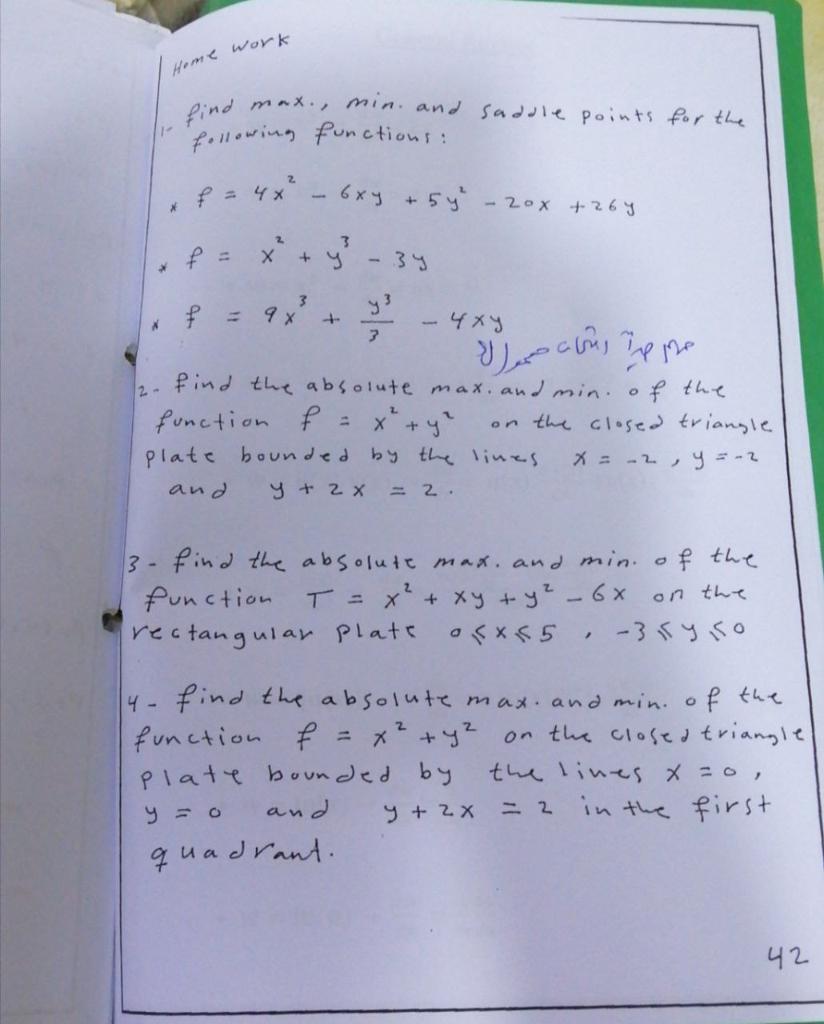 Home work
1- find max., min. and saddle points for the
following functions:
* f = 4x² - 6xy + 5y² - 20x + 26y
* f = x² + y³ - 3y
* f = 9x³ + y³/3 - 4xy
2- find the absolute max. and min. of the
function f = x² + y² on the closed triangle
plate bounded by the lines x = -2, y = -2
and y + 2x = 2.
3- find the absolute max. and min. of the
function T = x² + xy + y² - 6x on the
rectangular plate 0 ≤ x ≤ 5, -3 ≤ y ≤ 0
4- find the absolute max. and min. of the
function f = x² + y² on the closed triangle
plate bounded by the lines x = 0,
y = 0 and y + 2x = 2 in the first
quadrant.
42